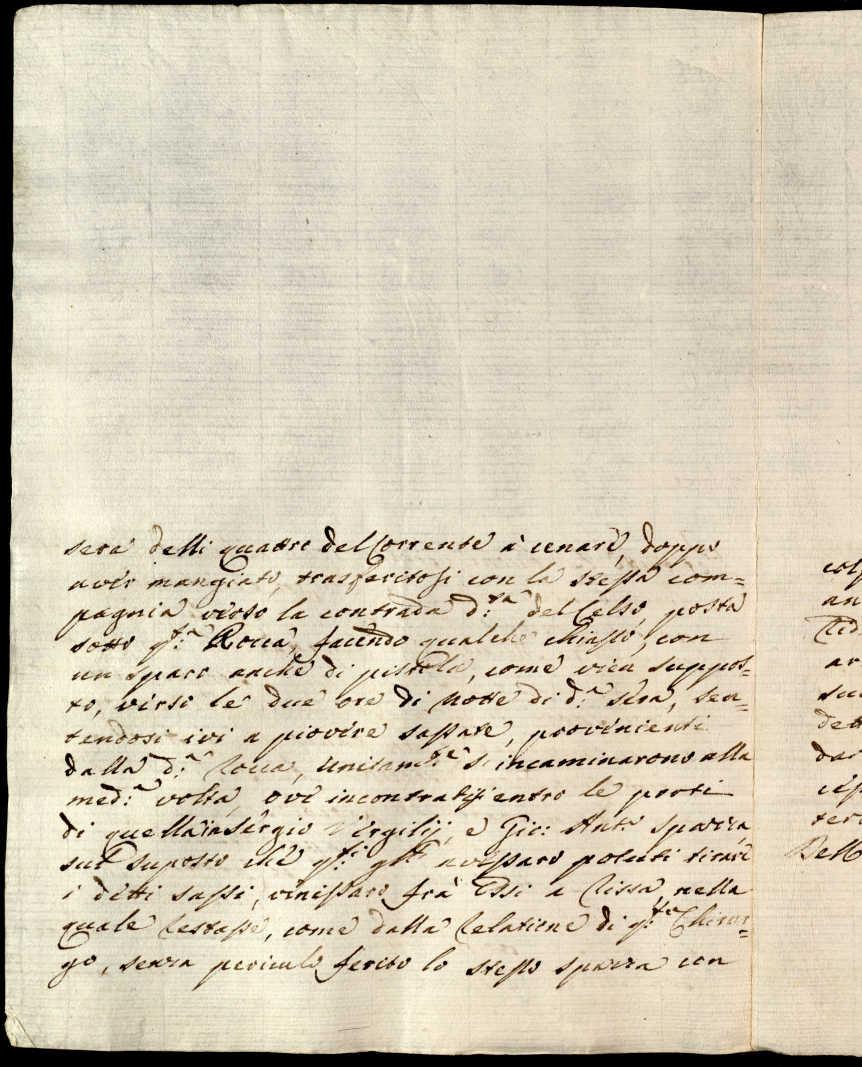 sera delli quattro del Corrente à cenare, doppo
aver mangiato, trasferitosi con la stessa com=
pagnia verso la contrada d:ᵗᵃ del Celso, posta
sotto q:ᵃ Rocca, facendo qualche chiasso, con
un sparo anche di pistola, come vien suppos=
to, verso le due ore di notte di d:ᵃ sera, sen=
tendosi ivi a piovere sassate, provenienti
dalla d:ᵃ Rocca, unitam:ᵉ s'incaminarono alla
med:ᵃ volta, ove incontratisi entro le porte
di quella in Sergio Virgilij, e Gio: Ant:º Sparra,
sul suposto che q:ⁱ avessaro potuti tirare
i detti sassi, venissaro frà Essi a rissa, nella
quale restasse, come dalla relatione di q:ᵗᵒ Chirur=
go, senza pericolo ferito lo stesso Sparra con
col
an
ar
suc
dett
dar
cep
terr
Dell